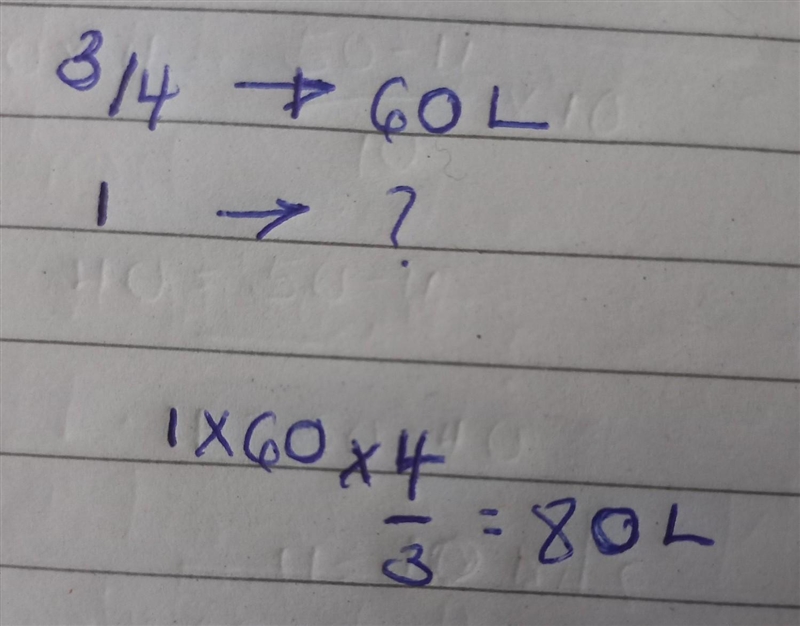 3/4 → 60 L
1 → ?
1 × 60 × 4/3 = 80 L